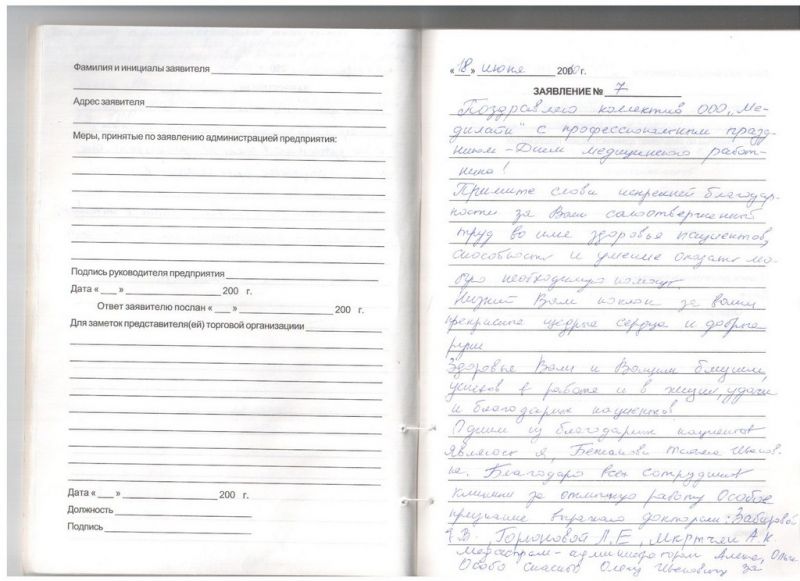 Фамилия и инициалы заявителя
Адрес заявителя
Меры, принятые по заявлению администрацией предприятия:
Подпись руководителя предприятия
Дата « » 200 г.
Ответ заявителю послан « » 200 г.
Для заметок представителя(ей) торговой организациии
Дата « » 200 г.
Должность
Подпись
«18» июня 200 г.
ЗАЯВЛЕНИЕ № 7
Поздравляю коллектив ООО „Ме-
дилайн" с профессиональным празд-
ником – Днем медицинского работ-
ника!
Примите слова искренней благодар-
ности за Ваш самоотверженный
труд во имя здоровья пациентов,
способности и умение оказать лю-
бую необходимую помощь
Низкий Вам поклон за ваши
прекрасные щедрые сердца и добрые
руки
Здоровья Вам и Вашим близким,
успехов в работе и в жизни, удачи
и благодарных пациентов
Одним из благодарных пациентов
являюсь я, Татьяна Иванов-
на. Благодарю всех сотрудников
клиники за отличную работу Особое
признание выражаю докторам: Забировой
Л.Е, Мкртчян А.К
Алене, Ольге
Особо спасибо Олегу Ивановичу за